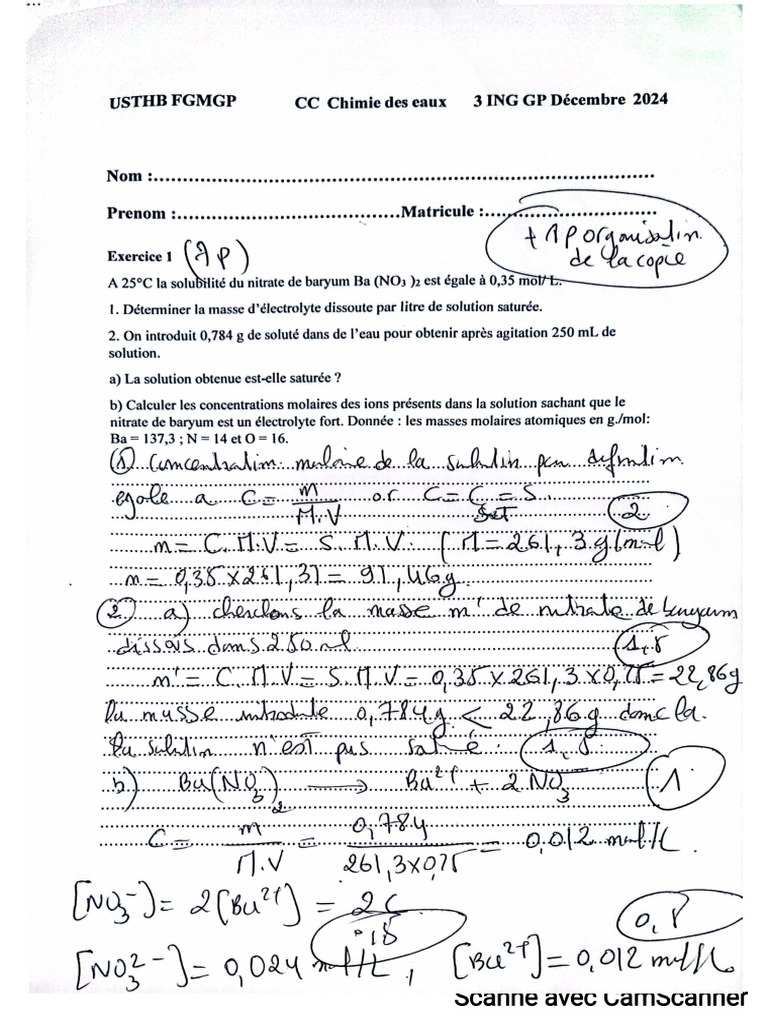 USTHB FGMGP CC Chimie des eaux 3 ING GP Décembre 2024
Nom :
Prenom : Matricule :
+ 1P organisation
de la copie
Exercice 1 (7P)
A 25°C la solubilité du nitrate de baryum Ba (NO3 )2 est égale à 0,35 mol/ L.
1. Déterminer la masse d'électrolyte dissoute par litre de solution saturée.
2. On introduit 0,784 g de soluté dans de l'eau pour obtenir après agitation 250 mL de
solution.
a) La solution obtenue est-elle saturée ?
b) Calculer les concentrations molaires des ions présents dans la solution sachant que le
nitrate de baryum est un électrolyte fort. Donnée : les masses molaires atomiques en g./mol:
Ba = 137,3 ; N = 14 et O = 16.
(1) Concentration molaire de la solution par definition
egale a C = m / M.V or C = C sat = S. (2)
m = C.M.V = S.M.V. (M = 261,3 g/mol)
m = 0,35 x 261,31 = 91,46g
(2) a) cherchons la masse m' de nitrate de baryum
dissous dans 250 ml (1,5)
m' = C.M.V = S.M.V = 0,35 x 261,3 x 0,25 = 22,86g
la masse introduite 0,784g < 22,86g donc la
la solution n'est pas saturé. (1,5)
b) Ba(NO3)2 → Ba2+ + 2NO3 (1)
C = m / M.V = 0,784 / 261,3x0,25 = 0,012 mol/L.
[NO3-] = 2[Ba2+] = 2C (0,5)
[NO3 2-] = 0,024 mol/L, [Ba2+] = 0,012 mol/L.
Scanné avec CamScanner